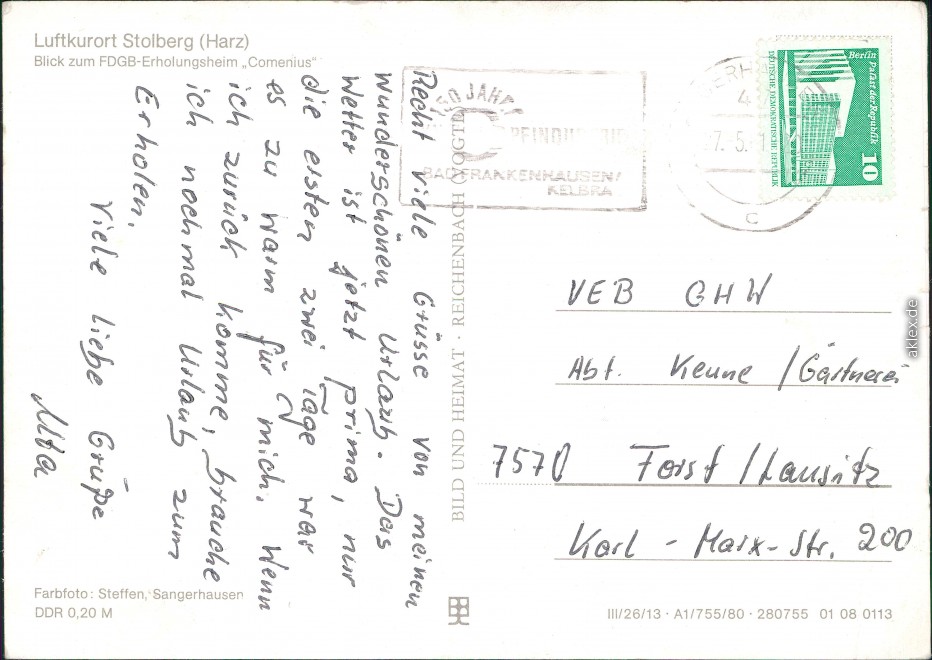 Luftkurort Stolberg (Harz)
Blick zum FDGB-Erholungsheim „Comenius"
Recht viele Grüsse von meinen
wunderschönen Urlaub. Das
Wetter ist jetzt prima, nur
die ersten zwei Tage war
es zu warm für mich. Wenn
ich zurück komme, brauche
ich nochmal Urlaub zum
Erholen.
Viele liebe Grüße
BILD UND HEIMAT · REICHENBACH (VOGTL)
JAHRE
BAD FRANKENHAUSEN/
KELBRA
C
Berlin
Palast der Republik
DEUTSCHE DEMOKRATISCHE REPUBLIK
10
VEB GHW
Abt. Keune / Gärtnerei
7570 Forst / Lausitz
Karl - Marx - Str. 200
Farbfoto: Steffen, Sangerhausen
DDR 0,20 M
III/26/13 · A1/755/80 · 280755 01 08 0113
aklex.de